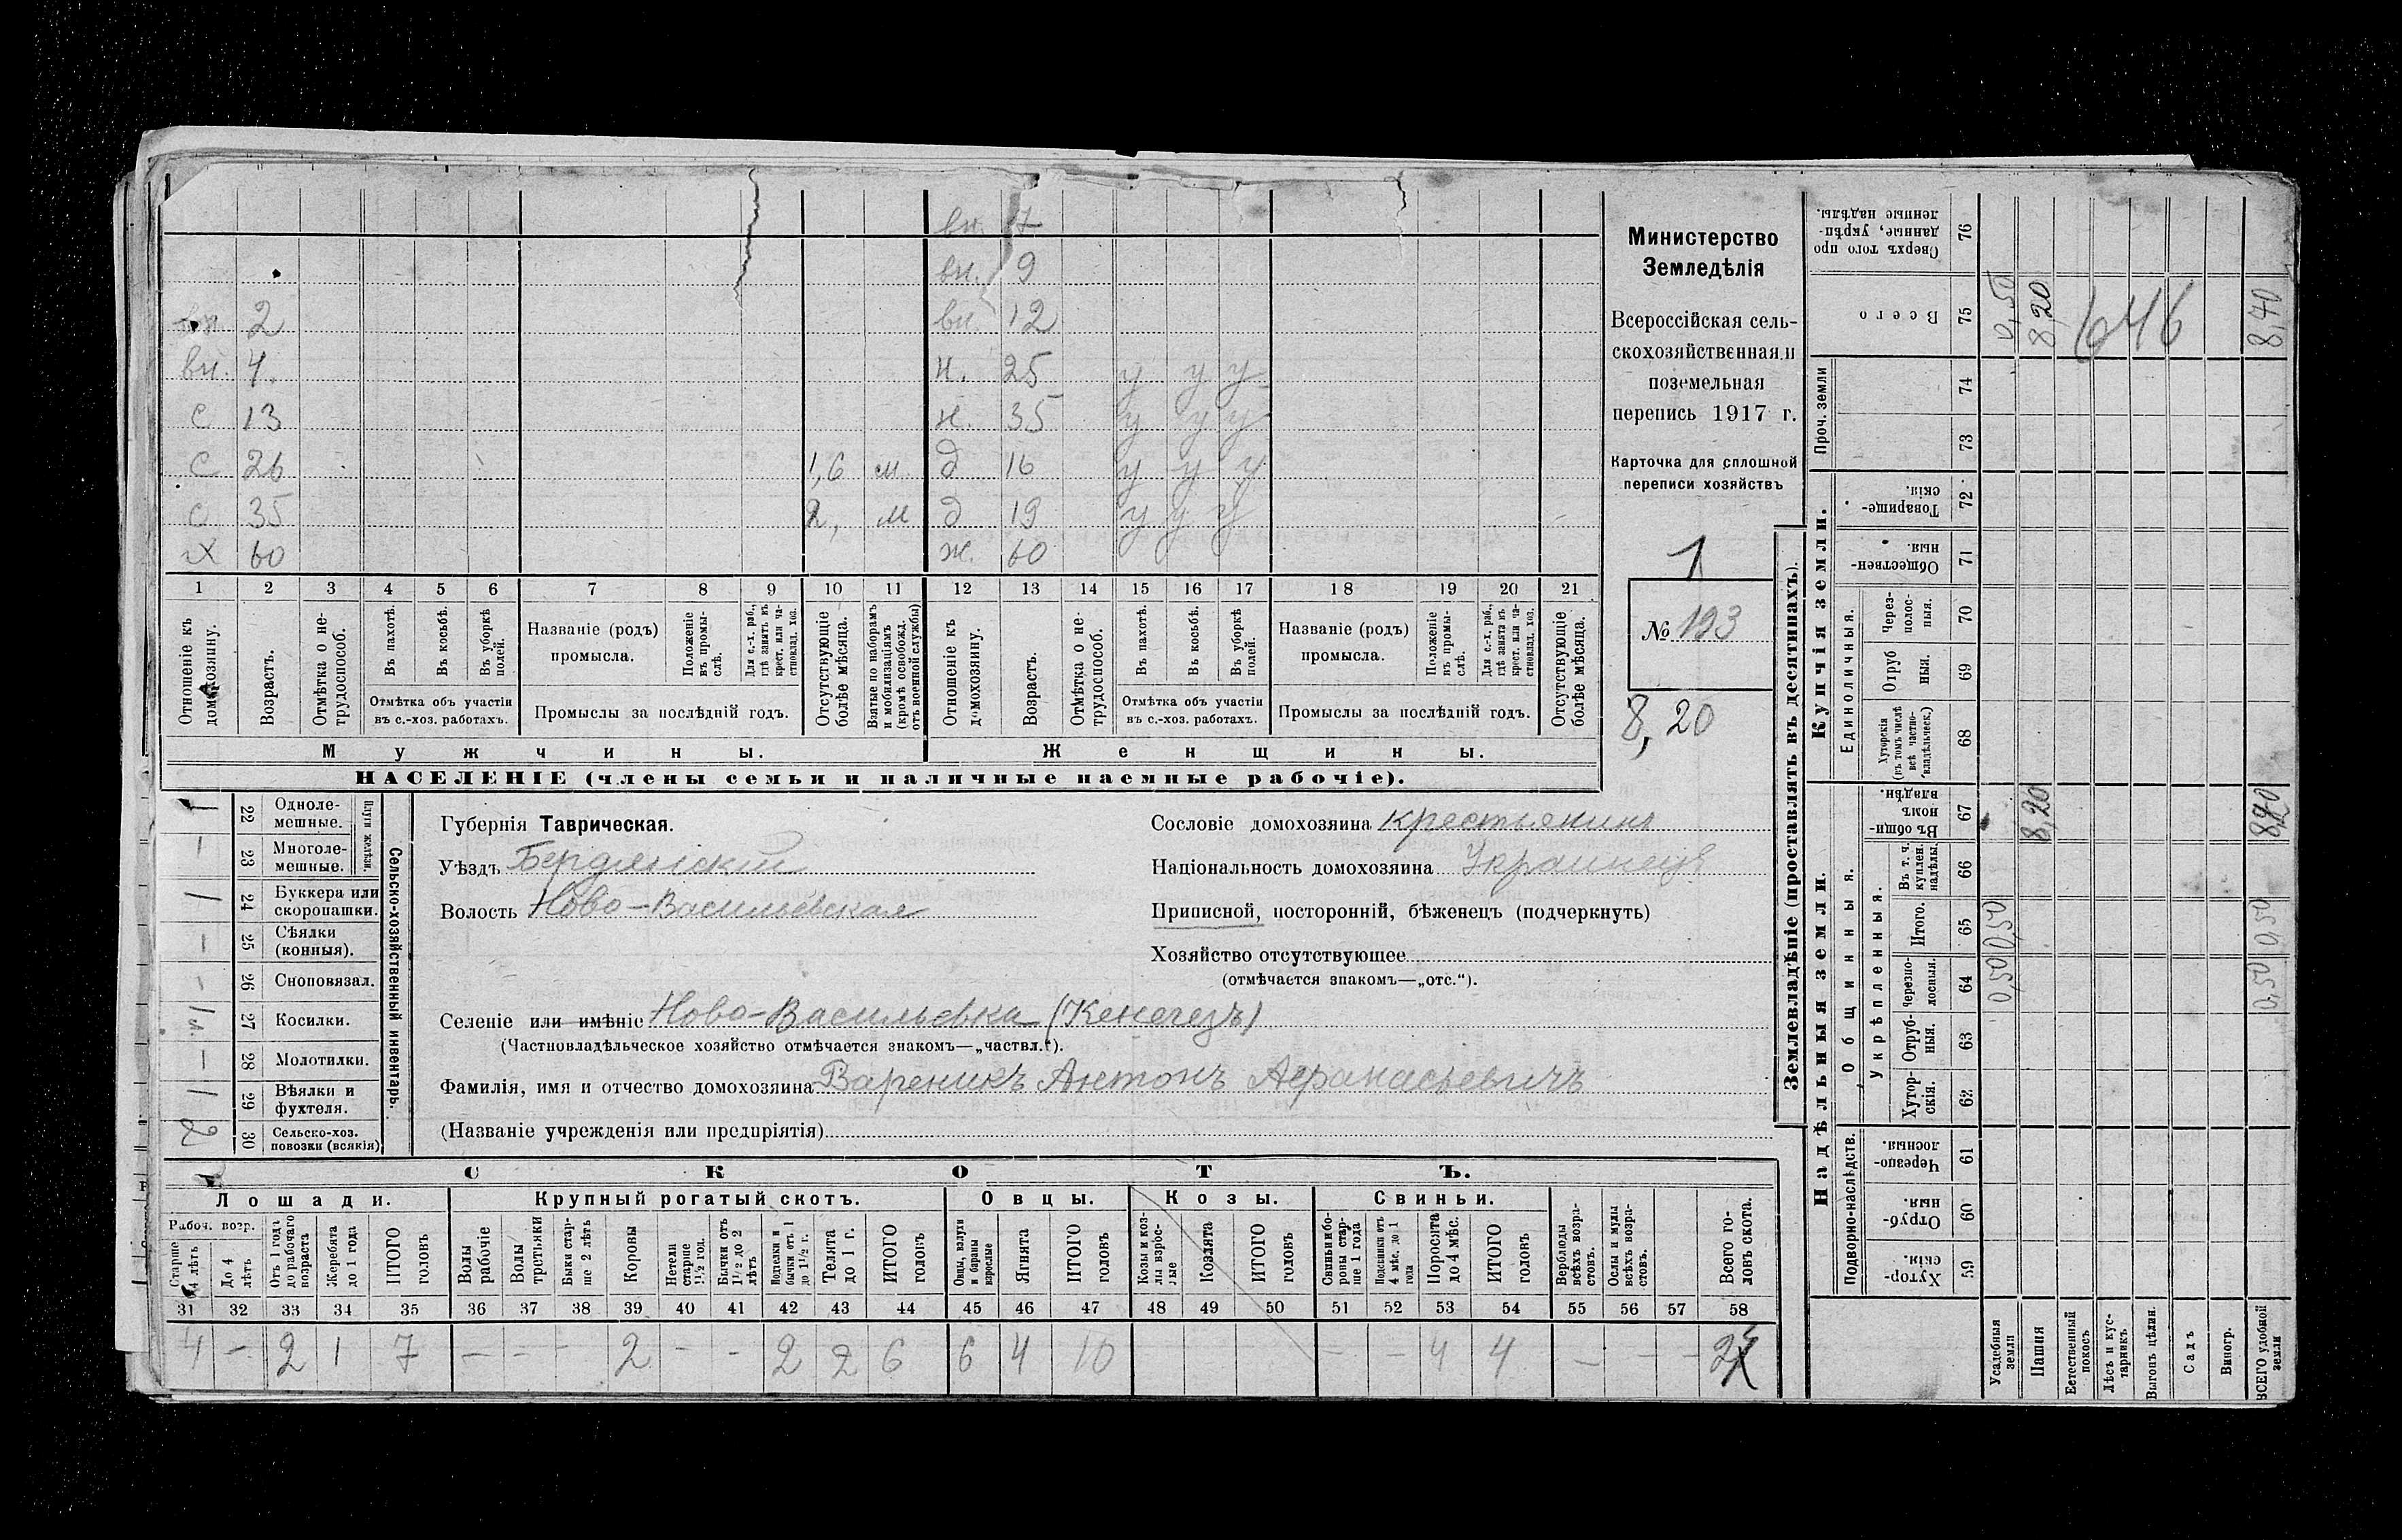 вн. 7
вн. 9
вн. 2 вн. 12
вн. 4. н. 25 у у у
с 13 н. 35 у у у
с 26 1,6 м. д 16 у у у
с 35 2, м д 19 у у у
х 60 ж. 60
1 2 3 4 5 6 7 8 9 10 11 12 13 14 15 16 17 18 19 20 21
Отношеніе къ домохозяину.
Возрастъ.
Отмѣтка о не-
трудоспособ.
Въ пахотѣ.
Въ косьбѣ.
Въ уборкѣ
полей.
Отмѣтка объ участіи
въ с.-хоз. работахъ.
Названіе (родъ)
промысла.
Положеніе
въ промы-
слѣ.
Для с.-х. раб.,
гдѣ занятъ въ
крест. или ча-
стновлад. хоз.
Промыслы за послѣдній годъ.
Отсутствующіе
болѣе мѣсяца.
Взятые по наборамъ
и мобилизаціямъ
(кромѣ освобожд.
отъ военной службы)
Отношеніе къ
домохозяину.
Возрастъ.
Отмѣтка о не-
трудоспособ.
Въ пахотѣ.
Въ косьбѣ.
Въ уборкѣ
полей.
Отмѣтка объ участіи
въ с.-хоз. работахъ.
Названіе (родъ)
промысла.
Положеніе
въ промы-
слѣ.
Для с.-х. раб.,
гдѣ занята въ
крест. или ча-
стновлад. хоз.
Промыслы за послѣдній годъ.
Отсутствующіе
болѣе мѣсяца.
Мужчины.
Женщины.
НАСЕЛЕНІЕ (члены семьи и наличные наемные рабочіе).
Министерство
Земледѣлія
Всероссійская сель-
скохозяйственная и
поземельная
перепись 1917 г.
Карточка для сплошной
переписи хозяйствъ
1
№ 193
8,20
1 22 Одноле-
мешные.
– 23 Многоле-
мешные.
Плуги желѣзн.
1 24 Буккера или
скоропашки.
– 25 Сѣялки
(конныя).
- 26 Сноповязал.
27 Косилки.
– 28 Молотилки.
1 29 Вѣялки и
фухтеля.
2 30 Сельско-хоз.
повозки (всякія)
Сельско-хозяйственный инвентарь.
Губернія Таврическая.
Уѣздъ Бердянскій
Волость Ново-Васильевская
Сословіе домохозяина крестьянинъ
Національность домохозяина Украинецъ
Приписной, посторонній, бѣженецъ (подчеркнуть)
Хозяйство отсутствующее
(отмѣчается знакомъ—„отс.“).
Селеніе или имѣніе Ново-Васильевка (Кенегезъ)
(Частновладѣльческое хозяйство отмѣчается знакомъ—„частвл.“).
Фамилія, имя и отчество домохозяина Вареникъ Антонъ Афанасьевичъ
(Названіе учрежденія или предпріятія)
СКОТЪ.
Лошади. Крупный рогатый скотъ. Овцы. Козы. Свиньи.
Рабоч. возр.
Старше
4 лѣтъ
До 4
лѣтъ
Отъ 1 года
до рабочаго
возраста
Жеребята
до 1 года
ИТОГО
головъ
Волы
рабочіе
Волы
третьяки
Быки стар-
ше 2 лѣтъ
Коровы
Нетели
старше
1½ год.
Бычки отъ
1½ до 2
лѣтъ
Подтелки и
бычки отъ 1
до 1½ г.
Телята
до 1 г.
ИТОГО
головъ
Овцы, валухи
и бараны
взрослые
Ягнята
ИТОГО
головъ
Козы и коз-
лы взрос-
лые
Козлята
ИТОГО
головъ
Свиньи и бо-
ровы стар-
ше 1 года
Подсвинки отъ
4 мѣс. до 1
года
Поросята
до 4 мѣс.
ИТОГО
головъ
Верблюды
всѣхъ возра-
стовъ.
Ослы и мулы
всѣхъ возра-
стовъ.
Всего го-
ловъ скота.
31 32 33 34 35 36 37 38 39 40 41 42 43 44 45 46 47 48 49 50 51 52 53 54 55 56 57 58
4 – 2 1 7 – – – 2 – – 2 2 6 6 4 10 – – 4 4 – – –
Землевладѣніе (проставлять въ десятинахъ).
Надѣльныя земли.
Купчія земли.
Подворно-наслѣдств.
Общинныя.
Укрѣпленныя.
Единоличныя.
Проч. земли
Хутор-
скія. 59
Отруб-
ныя. 60
Черезпо-
лосныя. 61
Хутор-
скія. 62
Отруб-
ныя. 63
Черезпо-
лосныя. 64
Итого. 65
Въ т. ч.
куплен.
надѣлы. 66
Въ общи-
номъ
владѣн. 67
Хуторскія
(въ томъ числѣ
всѣ частно-
владѣльческ.) 68
Отруб
ныя. 69
Через-
полос-
ныя. 70
Обществен-
ныя. 71
Товарище-
скія. 72
73
74
Всего 75
Сверхъ того про
данные, укрѣп-
ленные надѣлы. 76
Усадебныя
земли 0,50 0,50 0,50
Пашня 8,20 8,20
Естественный
покосъ
646
Лѣсъ и кус-
тарникъ
Выгонъ цѣлин.
Садъ
Виногр.
ВСЕГО удобной
земли 0,50 0,50 8,20 8,40